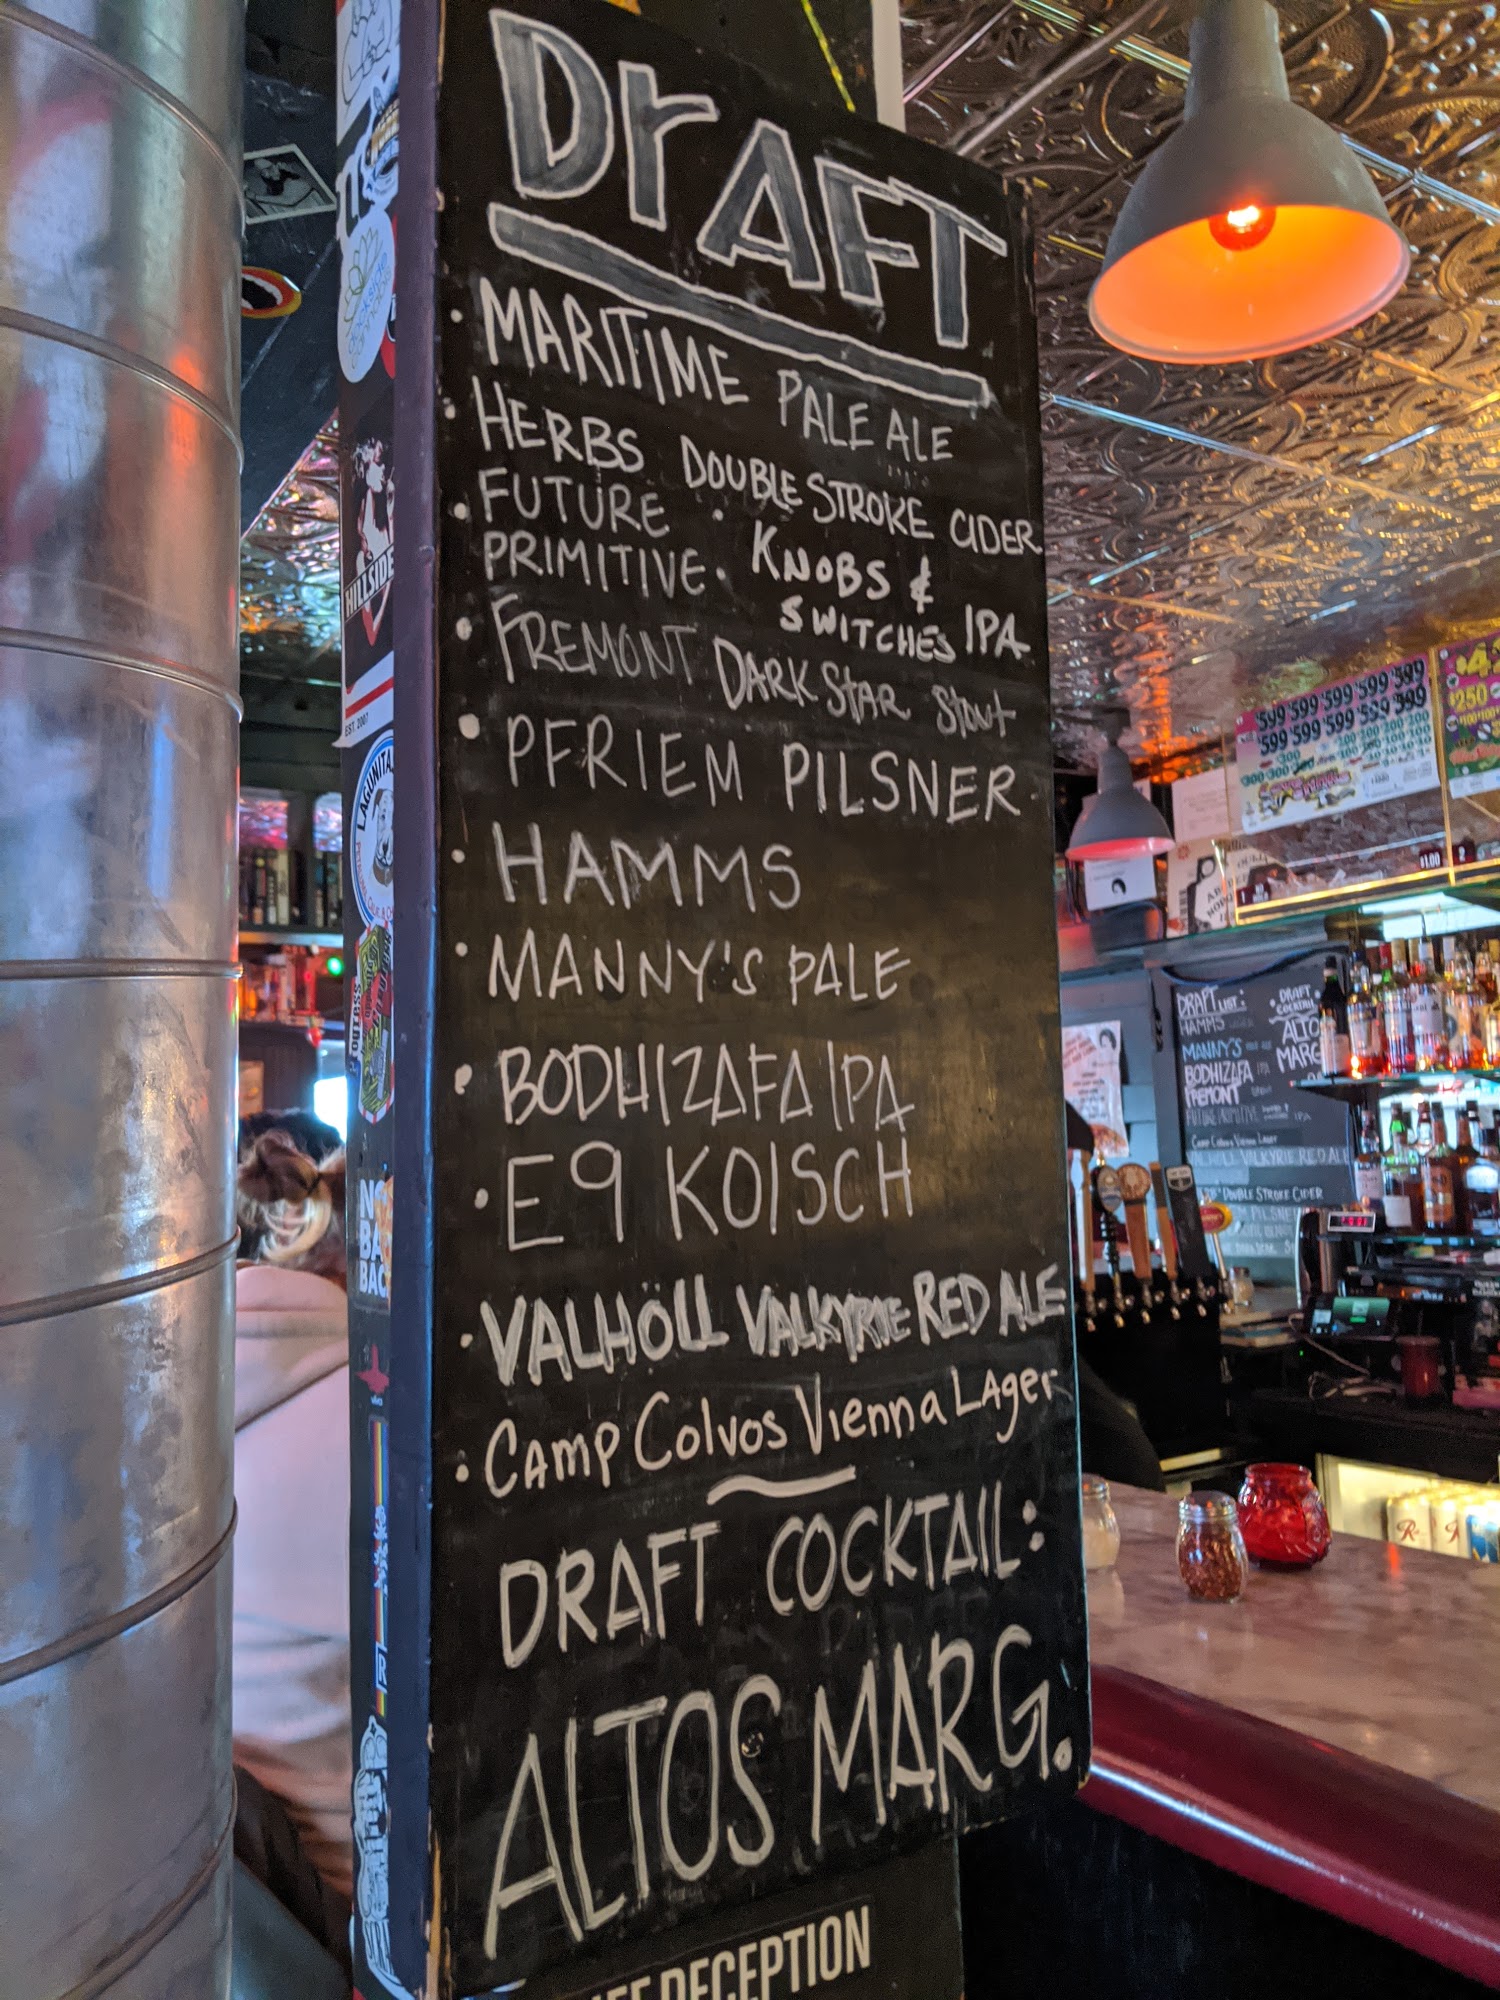 DrAFT
• MARITIME PALE ALE
• HERBS DOUBLE STROKE CIDER
• FUTURE PRIMITIVE • KNOBS & SWITCHES IPA
• FREMONT DARK STAR Stout
• PFRIEM PILSNER
• HAMMS
• MANNY'S PALE
• BODHIZAFA IPA
• E9 KOLSCH
• VALHÖLL VALKYRIE RED ALE
• CAMP COLVOS VIENNA LAGER
DRAFT COCKTAIL:
ALTOS MARG.
RECEPTION
HILLSIDE
EST. 2007
LAGUNITA
NO
BA
BAC
DRAFT LIST:
HAMMS
MANNY'S
BODHIZAFA IPA
FREMONT
FUTURE PRIMITIVE
CAMP COLVOS VIENNA LAGER
VALHOLL VALKYRIE RED ALE
DOUBLE STROKE CIDER
PILSNE
• DRAFT COCKTAIL
ALTO
MARG
599 599 599 599 599
599 599 599 599 599
$250
$1.00
R